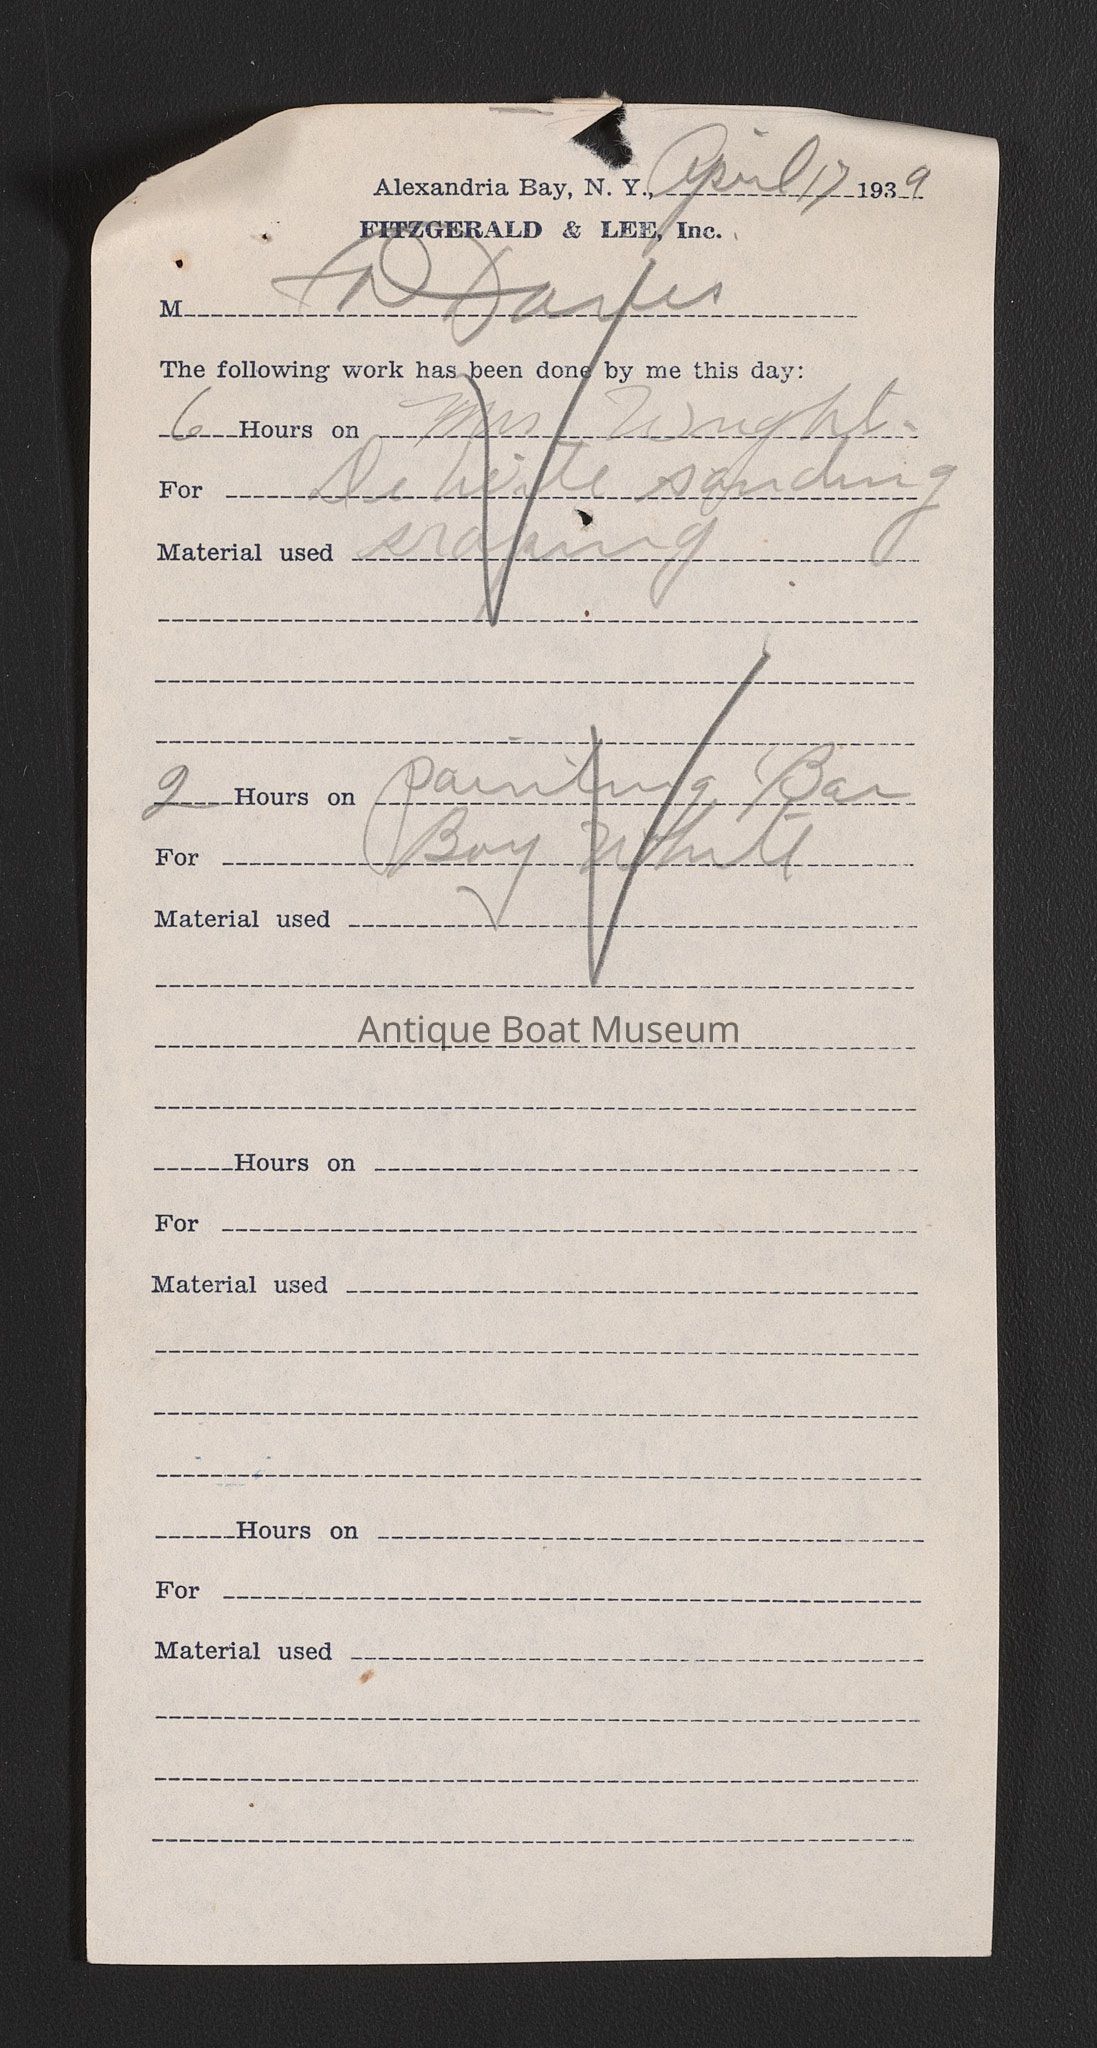 Alexandria Bay, N. Y., April 17 1939
FITZGERALD & LEE, Inc.
M Davis
The following work has been done by me this day:
6 Hours on Mrs Wright.
For sanding
Material used sraping
2 Hours on painting Bar
For Boy White
Material used
Antique Boat Museum
Hours on
For
Material used
Hours on
For
Material used